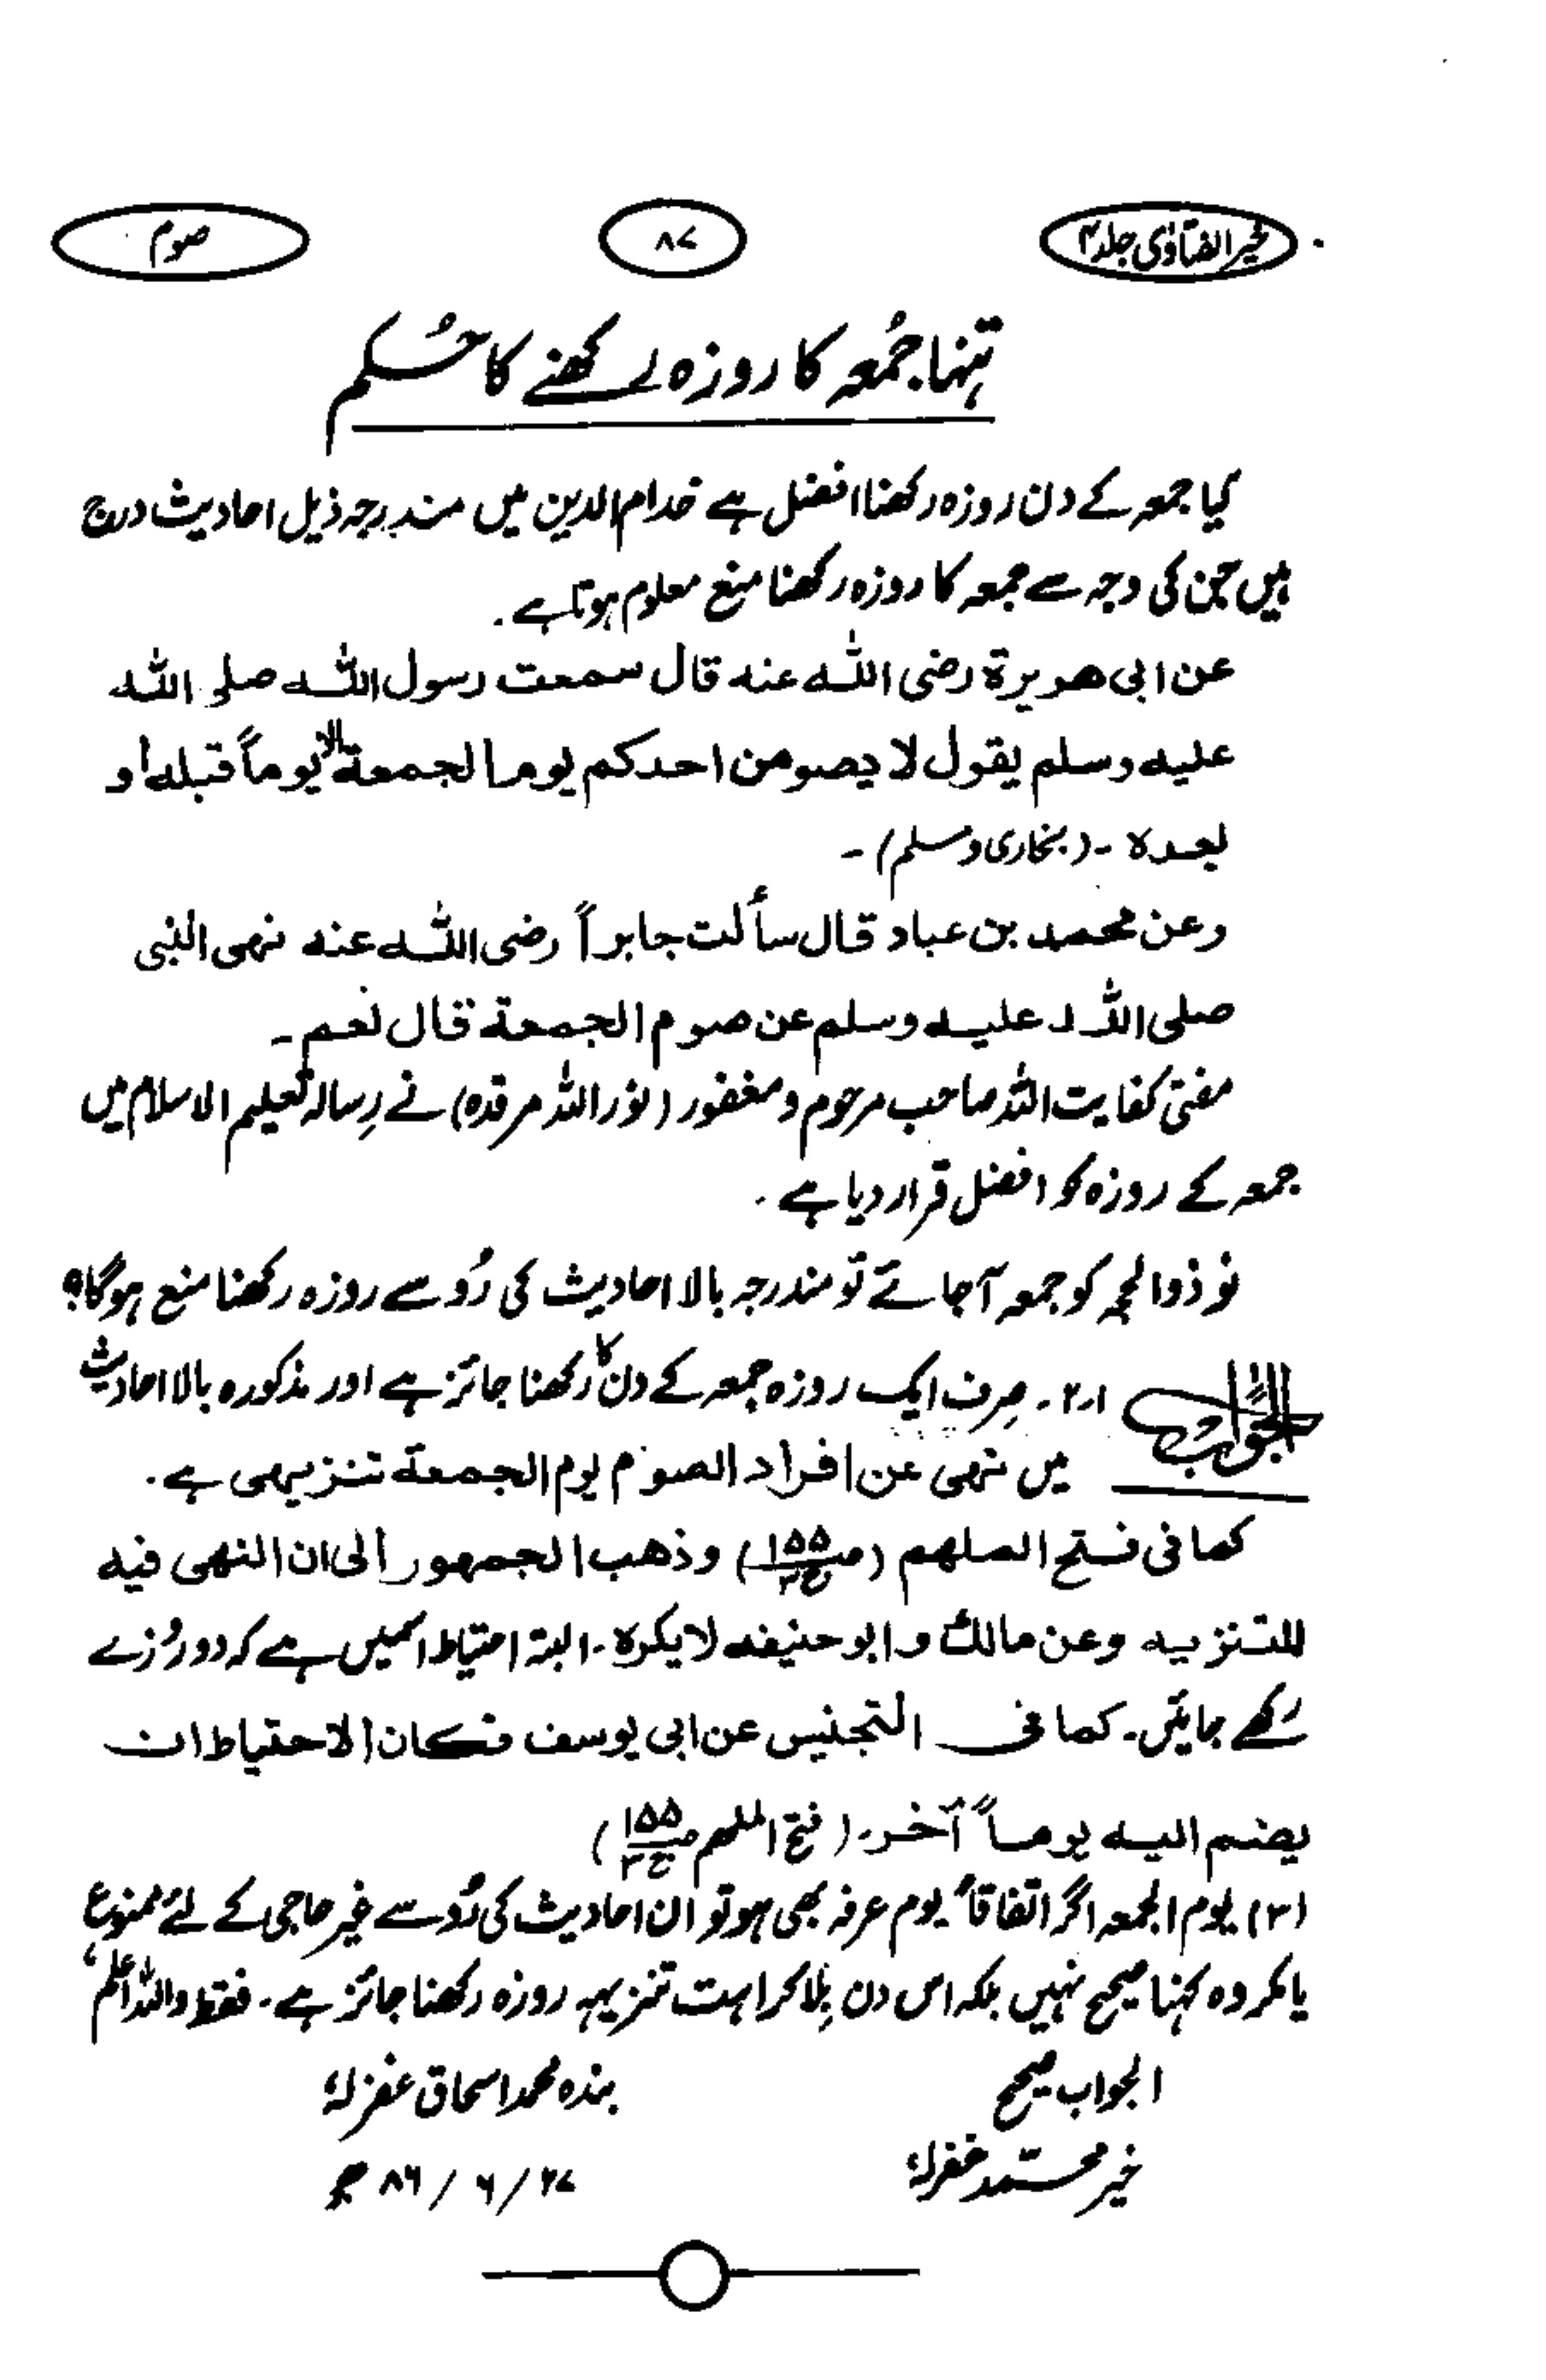 خیر الفتاوٰی جلد ۴
۸۷
صوم
تنہا جُمعہ کا روزہ رکھنے کا حُکم
کیا جمعہ کے دن روزہ رکھنا افضل ہے خدام الدین میں مندرجہ ذیل احادیث درج
ہیں جن کی وجہ سے جمعہ کا روزہ رکھنا منع معلوم ہوتا ہے۔
عن ابی هریرة رضی اللّٰه عنه قال سمعت رسول اللّٰه صلی اللّٰه
علیه وسلم یقول لا یصومن احدکم یوم الجمعة الا یوماً قبله او
بعده ۔ (بخاری و مسلم) ۔
وعن محمد بن عباد قال سألت جابراً رضی اللّٰه عنه نهی النبی
صلی اللّٰه علیه وسلم عن صوم الجمعة قال نعم ۔
مفتی کفایت اللّٰہ صاحب مرحوم و مغفور (نور اللّٰہ مرقدہ) نے رِسالہ تعلیم الاسلام میں
جمعہ کے روزہ کو افضل قرار دیا ہے۔
نو ذوالحجہ کو جمعہ آجائے تو مندرجہ بالا احادیث کی رُو سے روزہ رکھنا منع ہوگا؟
الجواب ۱۔۲۔ صِرف ایک روزہ جمعہ کے دن کا رکھنا جائز ہے اور مذکورہ بالا احادیث
میں نہی عن افراد الصوم یوم الجمعة تنزیہی ہے۔
کما فی فتح الملهم (ص۱۵۵ ج۳) وذهب الجمهور الی ان النهی فیه
للتنزیه وعن مالك و ابو حنیفه لا یکره۔ البتہ احتیاط اسمیں ہے کہ دو روزے
رکھے جائیں۔ کما فی التجنیس عن ابی یوسف فکان الاحتیاط ان
یضم الیه یوماً آخر۔ (فتح الملہم ص۱۵۵ ج۳)
(۳) یوم الجمعہ اگر اتفاقاً یوم عرفہ بھی ہو تو ان احادیث کی رُو سے غیر حاجی کے لئے ممنوع
یا مکروہ کہنا صحیح نہیں بلکہ اس دن بِلا کراہت تنزیہہ روزہ رکھنا جائز ہے۔ فقط واللّٰہ اعلم،
الجواب صحیح
بندہ محمد اسحاق غفرلہٗ
خیر محمّد غفرلہٗ
۲۷ / ۶ / ۸۶ ھ